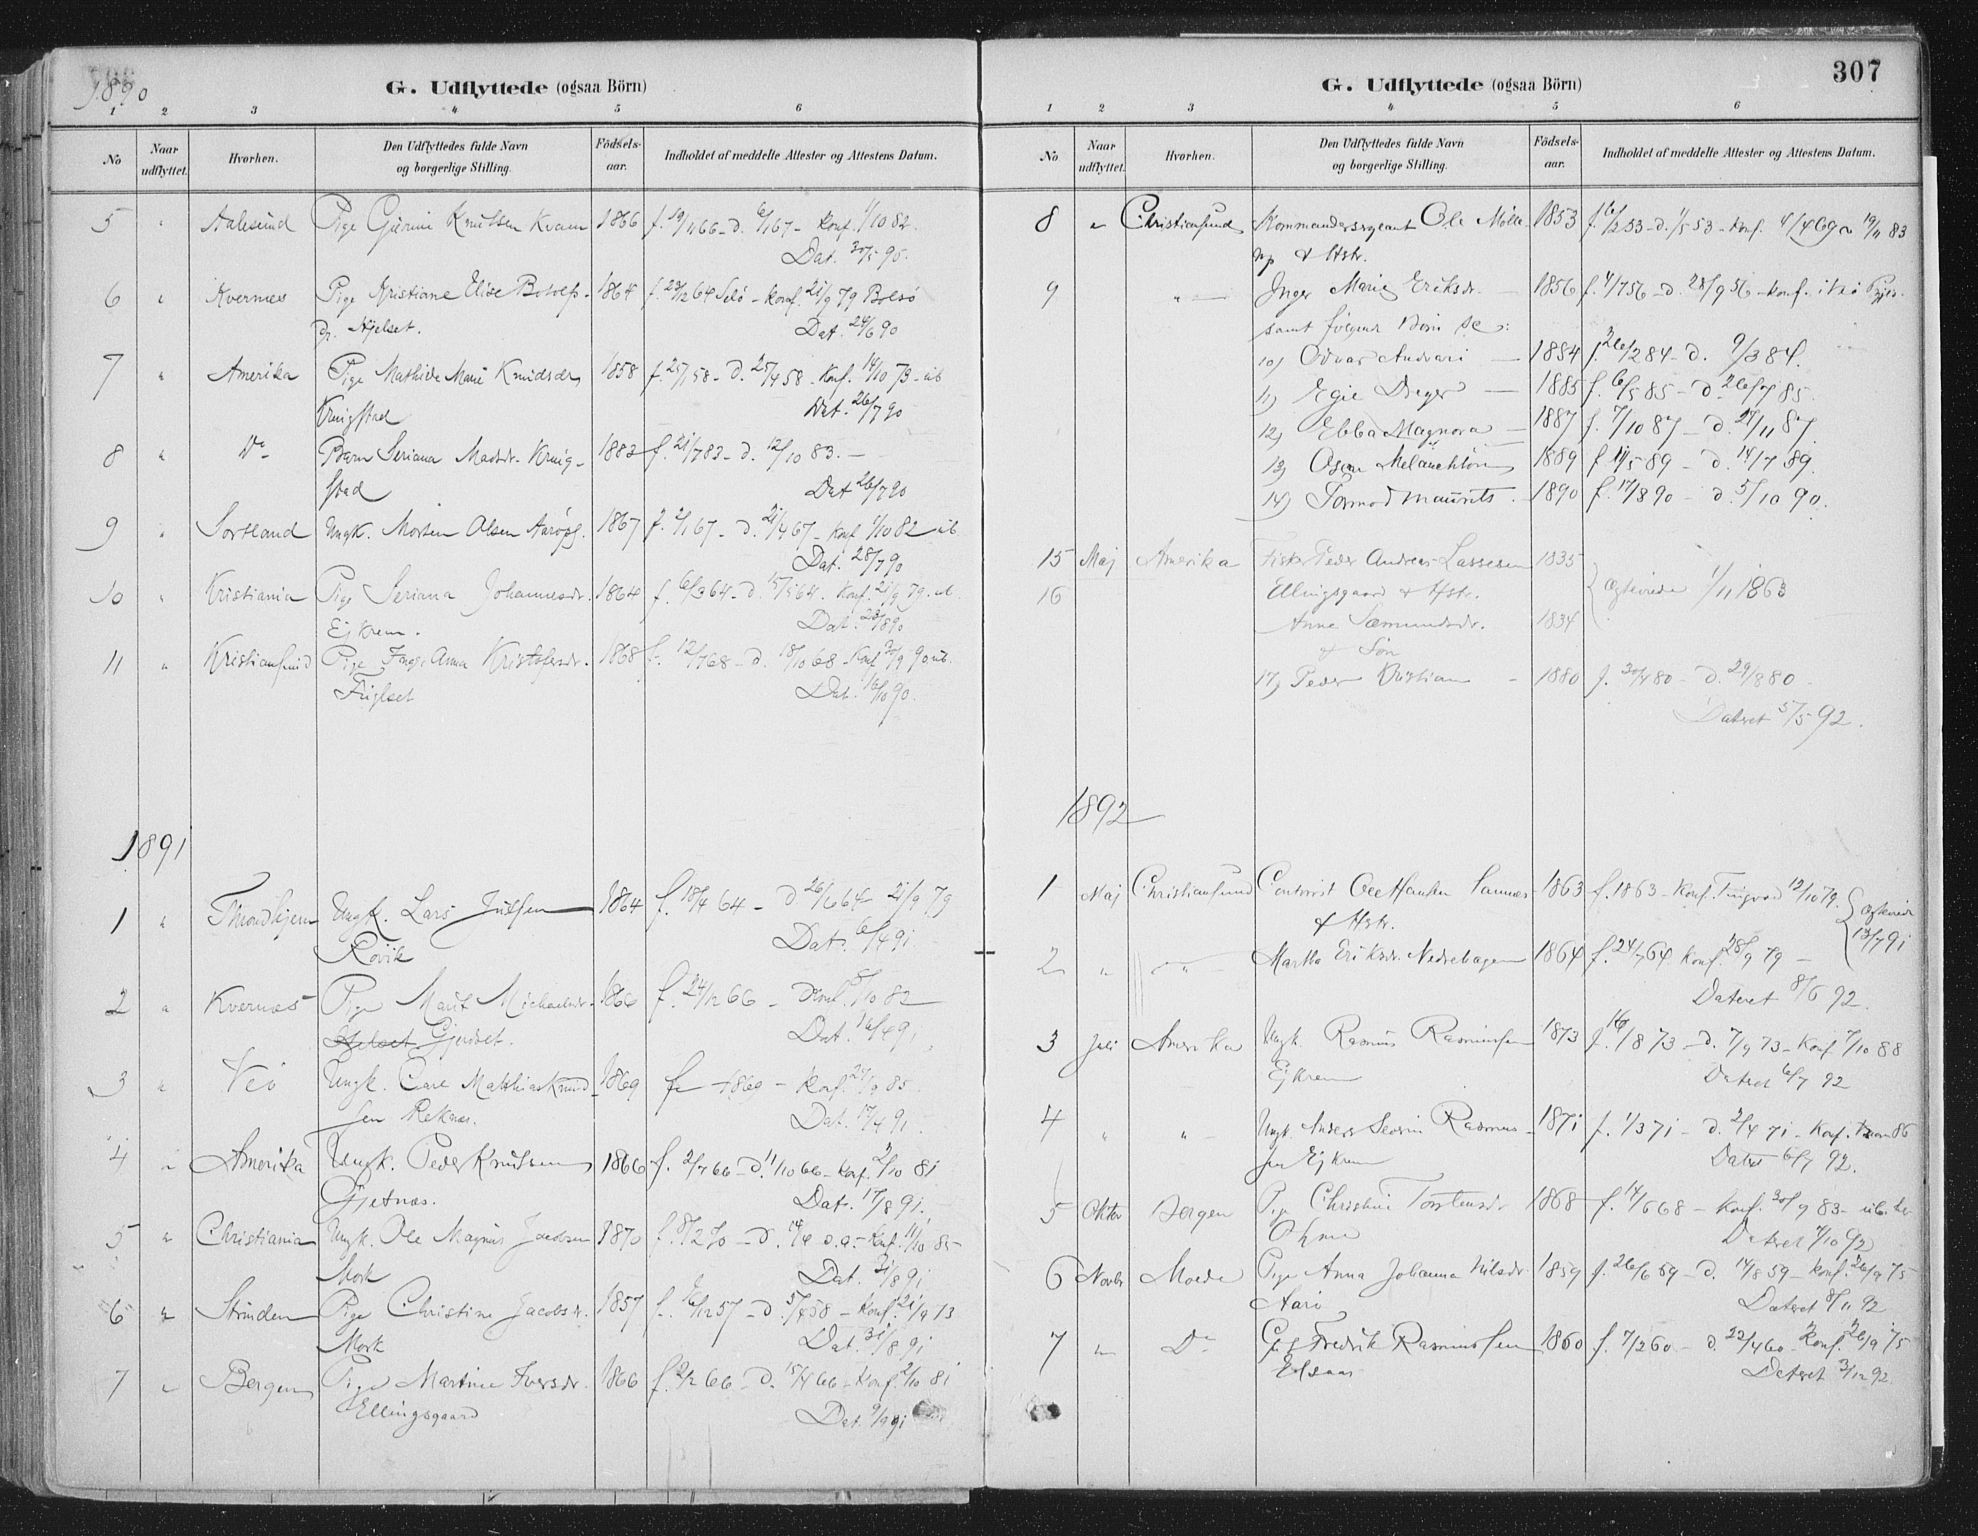 1890
G. Udflyttede (ogsaa Börn)
1 2 3 4 5 6
No
Naar udflyttet.
Hvorhen.
Den Udflyttedes fulde Navn og borgerlige Stilling.
Födselsaar.
Indholdet af meddelte Attester og Attestens Datum.
5 " Aalesund Pige Knutsen Kvam 1866 f. 19/11 66 - d. 6/1 67 - Konf. 1/10 82.
Dat. 30/5 90.
6 " Kvernes Pige Kristiane Elise Botolfs- 1864 f. 23/12 64 - Konf. 21/9 79 Bolsö
Hjelset. Dat. 24/6 90
7 " Amerika Pige Mathilde Marie Knudsdr 1858 f. 25/1 58 - d. 25/4 58 - Konf. 14/10 73 - ub
Kringstad Dat. 26/7 90
8 " Do Barn Seriana Madsdr. Kring- 1883 f. 21/7 83 - d. 12/10 83. -
stad Dat 26/7 90
9 " Sortland Ungk. Morten Olsen 1867 f. 2/1 67 - d. 21/4 67 - Konf 1/10 82 ub
Dat. 28/7 90
10 " Kristiania Pige Seriana Johannesdr. 1864 f. 6/3 64 - d. 64. Konf. 21/9 79. ub
Ejkrem. Dat. 90
11 " Kristiansund Pige Anna Kristofersdr. 1868 f. 12/7 68 - d. 18/10 68 - Konf ub.
Fuglset Dat. 16/10 90.
1891
1 " Throndhjem Ungk. Lars Julsen 1864 f. 18/4 64 - d. 26/6 64 - 21/9 79
Rövik Dat. 6/4 91
2 " Kvernæs Pige Marit Michaelsdr. 1866 f. 24/12 66 - Konf. 82
Hjelset Gjerdset. Dat. 16/4 91
3 " Veö Ungk. Carl Mathias Knud- 1869 f. 1869 - Konf. 85
sen Reknes. Dat. 17/4 91
4 " Amerika Ungk. Peder Knutsen 1866 f. 2/7 66 - d. 11/10 66 - Konf. 2/10 81
Gjetnæs. Dat. 17/8 91.
5 " Christiania Ungk. Ole Magnus Jacobsen 1870 f. 8/2 70 - d. s.a. - Konf. 11/10 85 -
Mork Dat. 21/8 91
6 " Strinden Pige Christine Jacobsdr. 1857 f. 12 57 - d. 5/4 58 - Konf. 21/9 73
Mork Dat. 31/8 91
7 " Bergen Pige Martine Iversdr. 1866 f. 2/2 66 - d. 15/4 66 - Konf. 2/10 81
Ellingsgaard Dat. 91
307
G. Udflyttede (ogsaa Börn)
1 2 3 4 5 6
No
Naar udflyttet.
Hvorhen.
Den Udflyttedes fulde Navn og borgerlige Stilling.
Födselsaar.
Indholdet af meddelte Attester og Attestens Datum.
8 " Christiansund Kommandersergeant Ole 1853 f. 6/2 53 - d. 1/5 53 - Konf. 4/4 69 19/11 83
& Hstr.
9 " Inger Marie Eriksdr. 1856 f. 4/7 56 - d. 28/9 56 - Konf. i
samt følgende Børn
10) Andvari 1884 f. 26/2 84 - d. 9/3 84.
11) Egil Dreyer 1885 f. 6/5 85 - d. 26/7 85.
12) Ebba Magnora 1887 f. 7/10 87 - d. 27/11 87.
13) Oscar Melanchton 1889 f. 11/5 89 - d. 14/7 89.
14) Tormod Maurits 1890 f. 17/8 90 - d. 5/10 90.
15 Maj Amerika Fisker Peder Andreas Lassesen 1835
16 Ellingsgaard & Hstr. Ægteviede 1/11 1863
Anne Sæmundsdr. 1834
& Søn
17) Peder Kristian 1880 f. 80 - d. 29/8 80 -
Dateret 5/5 92.
1892
1 Maj Christiansund Contorist Ole Hansen Sannæs 1863 f. 1863 - Konf. Tingvod 12/10 79. Ægteviede
& Hstr. 13/7 91
2 " " Martha Eriksdr. Nedrehagen 1864 f. 24/7 64 Konf. 28/9 79 -
Dateret 8/6 92.
3 Juli Amerika Ungk. Rasmus Rasmussen 1873 f. 16/8 73 - d. 7/9 73 - Konf 7/10 88
Ejkrem Dateret 6/7 92
4 " " Ungk. Anders Severin Rasmus- 1871 f. 1/3 71 - d. 2/4 71 - Konf. 86
sen Ejkrem Datret 6/7 92.
5 Oktbr Bergen Pige Christine Torstensdr 1868 f. 14/6 68 - Konf. 30/9 83 - ub.
Dateret 7/10 92
6 Novbr Molde Pige Anna Johanna Nilsdr 1859 f. 26/6 59 - d. 14/8 59 - Konf. 26/9 75
Aarö Dateret 8/11 92
7 " Do Fredrik Rasmussen 1860 f. 7/2 60 - d. 22/4 60 - Konf. 26/9 75
Elsaas Dateret 3/12 92.